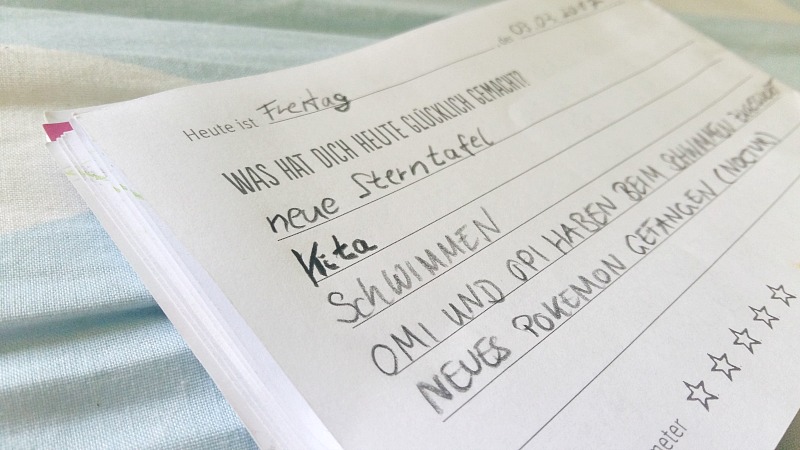 , den 03.03.2017
Heute ist Freitag
WAS HAT DICH HEUTE GLÜCKLICH GEMACHT?
neue Sterntafel
Kita
SCHWIMMEN
OMI UND OPI HABEN BEIM SCHWIMMEN ZUGESCHAUT
NEUES POKEMON GEFANGEN (NOCTUH)
meter